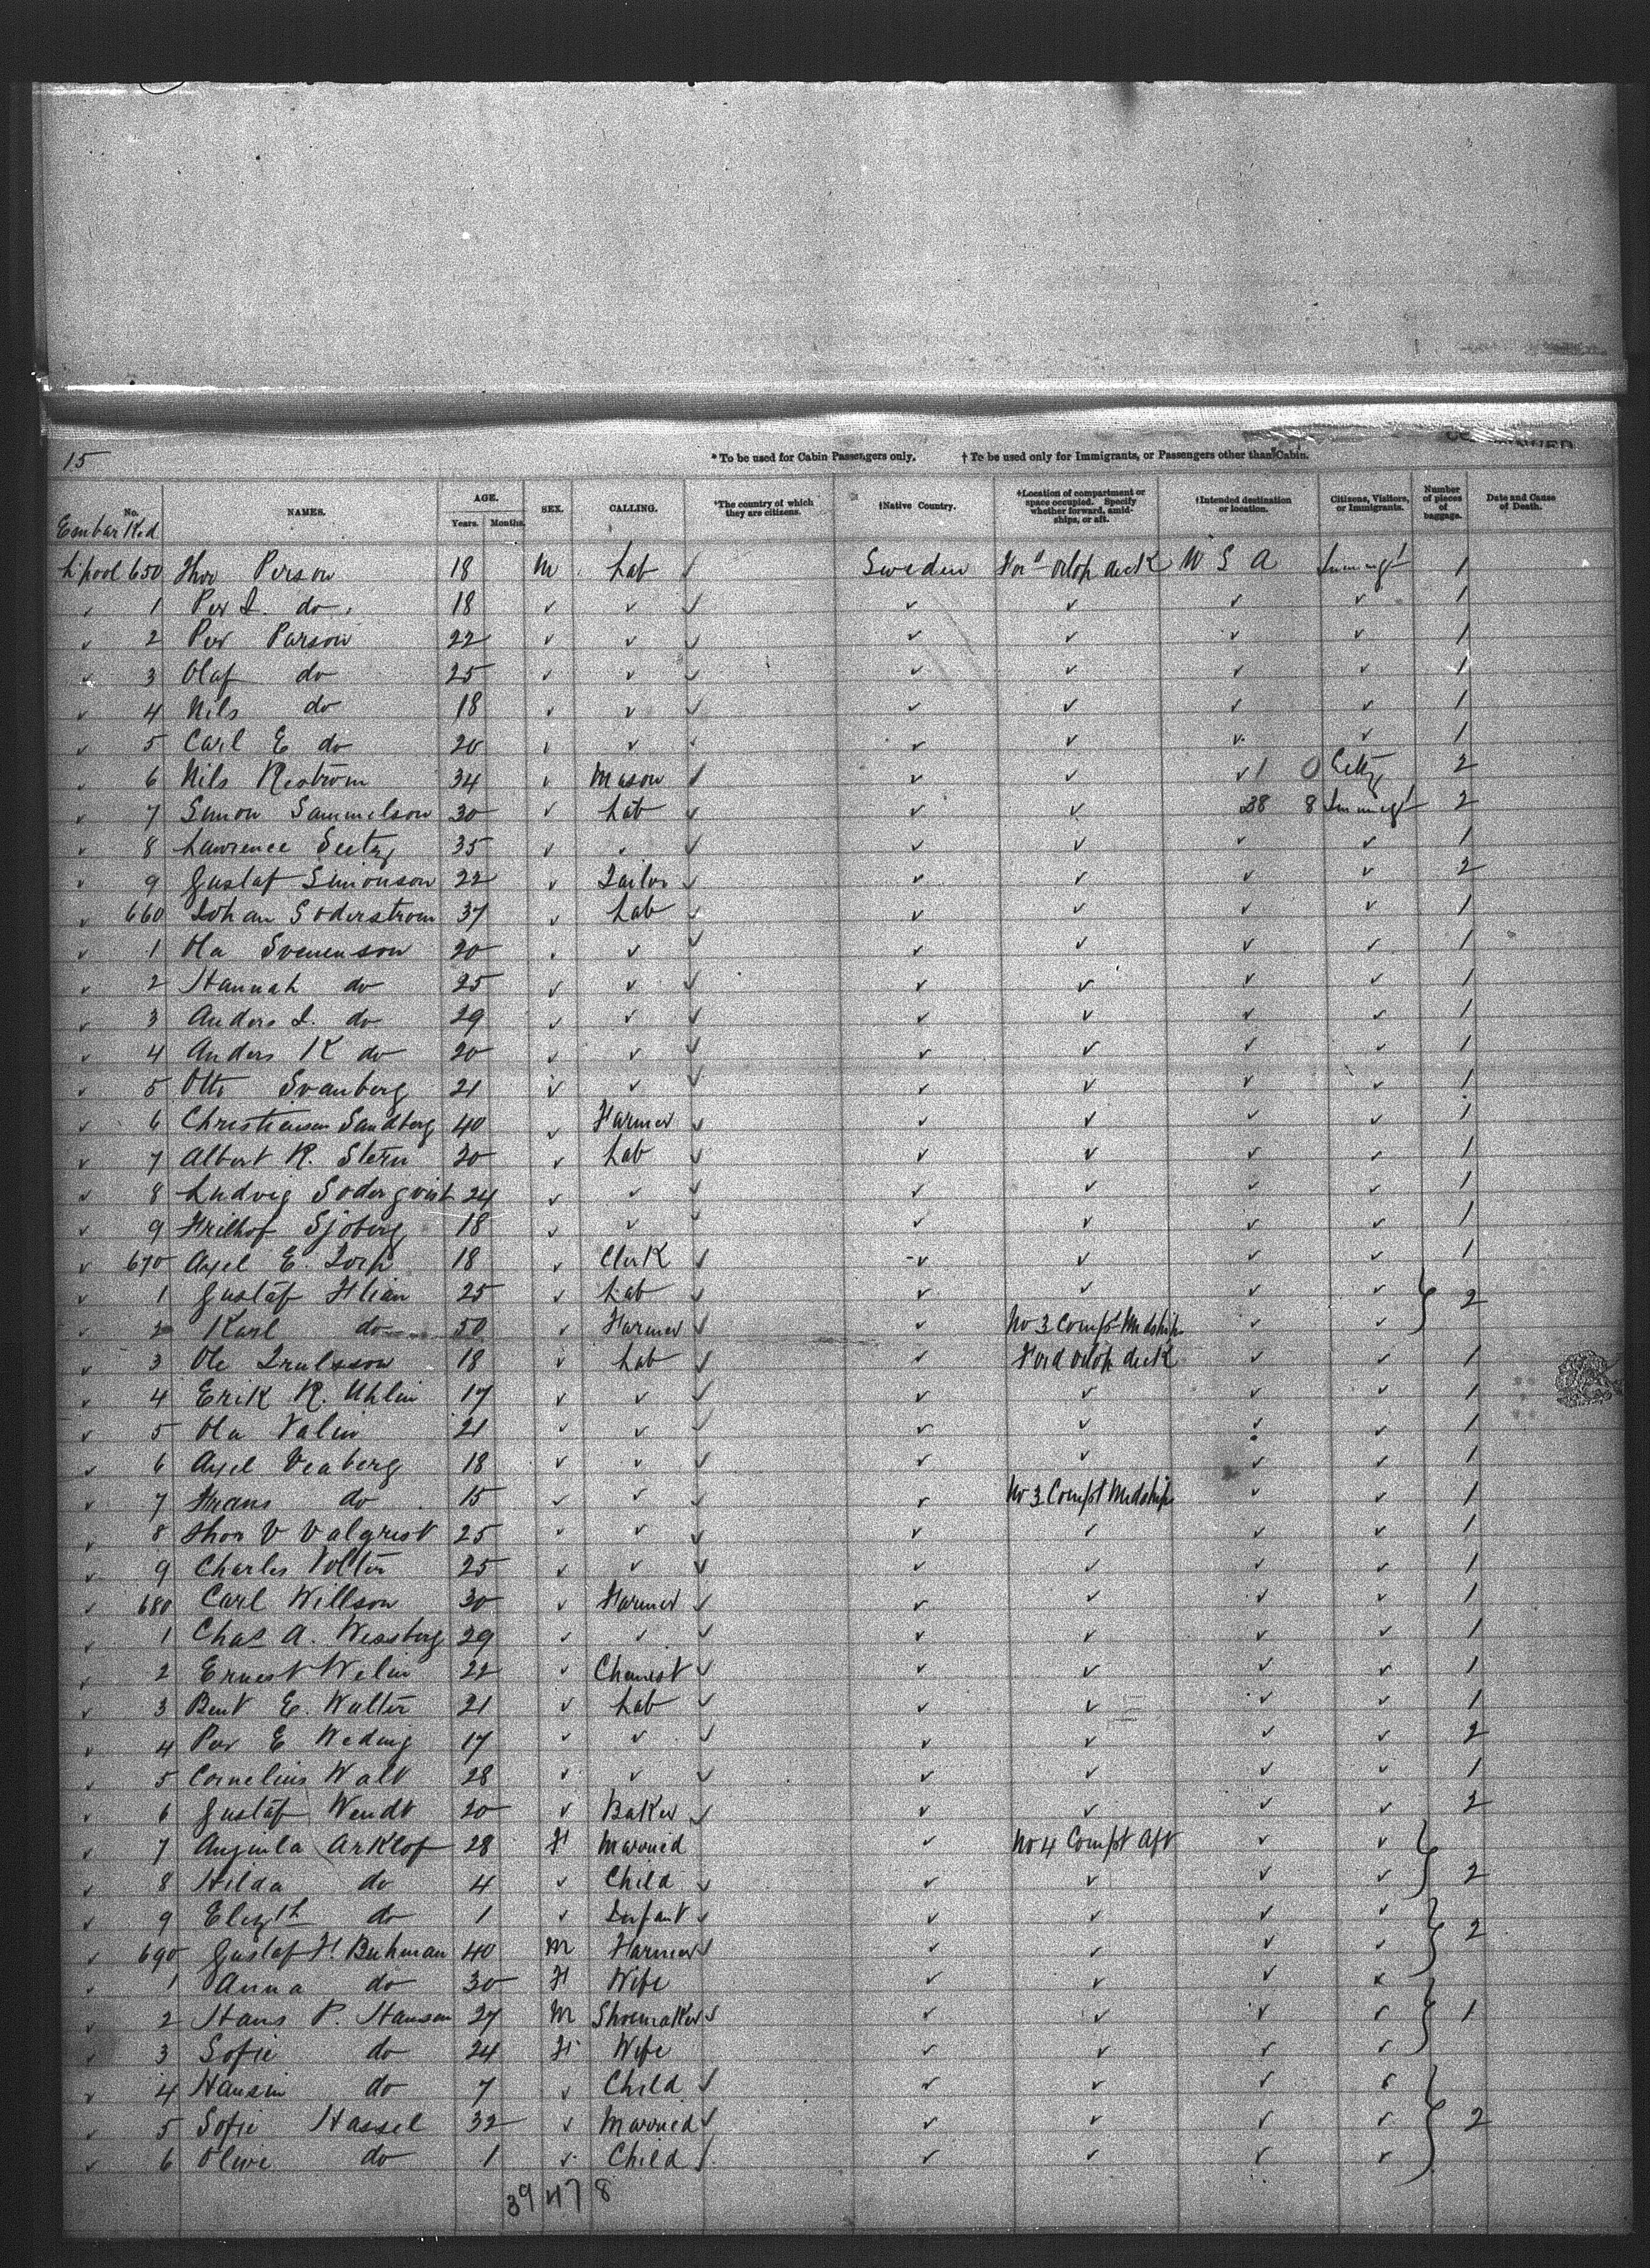 15
*To be used for Cabin Passengers only. †To be used only for Immigrants, or Passengers other than Cabin.
No. NAMES. AGE. Years. Months. SEX. CALLING. *The country of which they are citizens. †Native Country. †Location of compartment or space occupied. Specify whether forward, amidships, or aft. †Intended destination or location. Citizens, Visitors, or Immigrants. Number of pieces of baggage. Date and Cause of Death.
Embarked
L'pool 650 Thor Person 18 M Lab ✓ Sweden For'd orlop deck U S A Immigt 1
✓ 1 Per I. do. 18 ✓ ✓ ✓ ✓ ✓ ✓ ✓ 1
✓ 2 Per Parson 22 ✓ ✓ ✓ ✓ ✓ ✓ ✓ 1
✓ 3 Olaf do 25 ✓ ✓ ✓ ✓ ✓ ✓ ✓ 1
✓ 4 Nils do 18 ✓ ✓ ✓ ✓ ✓ ✓ ✓ 1
✓ 5 Carl E do 20 ✓ ✓ ✓ ✓ ✓ ✓ ✓ 1
✓ 6 Nils 34 ✓ Mason ✓ ✓ ✓ ✓ 1 0 2
✓ 7 Simon Sammelson 30 ✓ Lab ✓ ✓ ✓ 38 8 Immigt 2
✓ 8 Lawrence 35 ✓ ✓ ✓ ✓ ✓ ✓ ✓ 1
✓ 9 Gustaf Simonson 22 ✓ Tailor ✓ ✓ ✓ ✓ ✓ 2
✓ 660 Johan Soderstrom 37 ✓ Lab ✓ ✓ ✓ ✓ ✓ 1
✓ 1 Ola Svenenson 20 ✓ ✓ ✓ ✓ ✓ ✓ ✓ 1
✓ 2 Hannah do 25 ✓ ✓ ✓ ✓ ✓ ✓ ✓ 1
✓ 3 Anders I. do 29 ✓ ✓ ✓ ✓ ✓ ✓ ✓ 1
✓ 4 Anders K do 20 ✓ ✓ ✓ ✓ ✓ ✓ ✓ 1
✓ 5 Otto Svanberg 21 ✓ ✓ ✓ ✓ ✓ ✓ ✓ 1
✓ 6 Sandberg 40 ✓ Farmer ✓ ✓ ✓ ✓ ✓ 1
✓ 7 Albert R. Stern 30 ✓ Lab ✓ ✓ ✓ ✓ ✓ 1
✓ 8 Ludvig Soderqvist 24 ✓ ✓ ✓ ✓ ✓ ✓ ✓ 1
✓ 9 Frithof Sjoberg 18 ✓ ✓ ✓ ✓ ✓ ✓ ✓ 1
✓ 670 Axel E. 18 ✓ Clerk ✓ ✓ ✓ ✓ ✓ 1
✓ 1 Gustaf 25 ✓ Lab ✓ ✓ ✓ ✓ ✓ } 2
✓ 2 Karl do 50 ✓ Farmer ✓ No 3 Compt Midships ✓ ✓
✓ 3 Ole Trulsson 18 ✓ Lab ✓ ✓ Ford orlop deck ✓ ✓ 1
✓ 4 Erik R. Uhlin 17 ✓ ✓ ✓ ✓ ✓ ✓ ✓ 1
✓ 5 Ola Valin 21 ✓ ✓ ✓ ✓ ✓ ✓ ✓ 1
✓ 6 Axel Veaberg 18 ✓ ✓ ✓ ✓ ✓ ✓ ✓ 1
✓ 7 Frans do 15 ✓ ✓ ✓ ✓ No 3 Compt Midships ✓ ✓ 1
✓ 8 Thor V Valqrist 25 ✓ ✓ ✓ ✓ ✓ ✓ ✓ 1
✓ 9 Charles Volter 25 ✓ ✓ ✓ ✓ ✓ ✓ ✓ 1
✓ 680 Carl Willson 30 ✓ Farmer ✓ ✓ ✓ ✓ ✓ 1
✓ 1 Chas A. Wessberg 29 ✓ ✓ ✓ ✓ ✓ ✓ ✓ 1
✓ 2 Ernest Welin 22 ✓ Chemist ✓ ✓ ✓ ✓ ✓ 1
✓ 3 Bent E. Walter 21 ✓ Lab ✓ ✓ ✓ ✓ ✓ 1
✓ 4 Per E Weding 17 ✓ ✓ ✓ ✓ ✓ ✓ ✓ 2
✓ 5 Cornelius Walt 28 ✓ ✓ ✓ ✓ ✓ ✓ ✓ 1
✓ 6 Gustaf Wendt 20 ✓ Baker ✓ ✓ ✓ ✓ ✓ 2
✓ 7 Arklof 28 F Married ✓ No 4 Compt Aft ✓ ✓ }
✓ 8 Hilda do 4 ✓ Child ✓ ✓ ✓ ✓ ✓ 2
✓ 9 Elizth do 1 ✓ Infant ✓ ✓ ✓ ✓ ✓ }
✓ 690 Gustaf F. Buhman 40 M Farmer ✓ ✓ ✓ ✓ ✓ 2
✓ 1 Anna do 30 F Wife ✓ ✓ ✓ ✓ }
✓ 2 Hans P. Hansen 27 M Shoemaker ✓ ✓ ✓ ✓ ✓ 1
✓ 3 Sofie do 24 F Wife ✓ ✓ ✓ ✓
✓ 4 Hansin do 7 ✓ Child ✓ ✓ ✓ ✓ ✓ }
✓ 5 Sofie Hassel 32 ✓ Married ✓ ✓ ✓ ✓ ✓ 2
✓ 6 Olive do 1 ✓ Child ✓ ✓ ✓ ✓ ✓
39 47 8